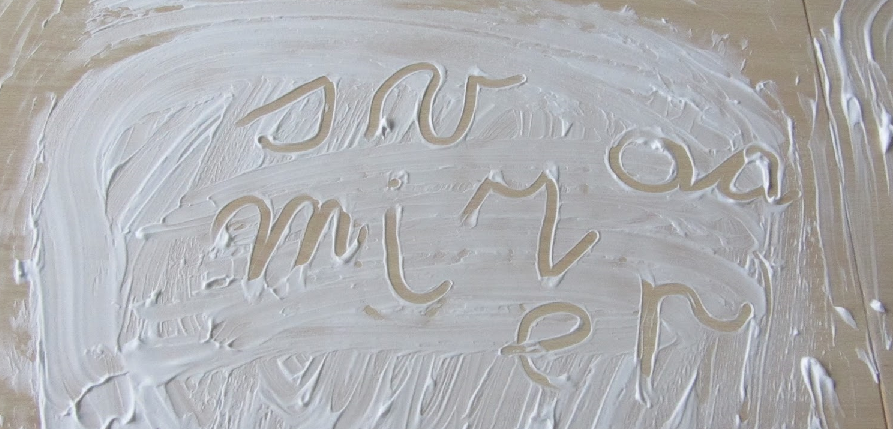 s v
o a
m i r
e r